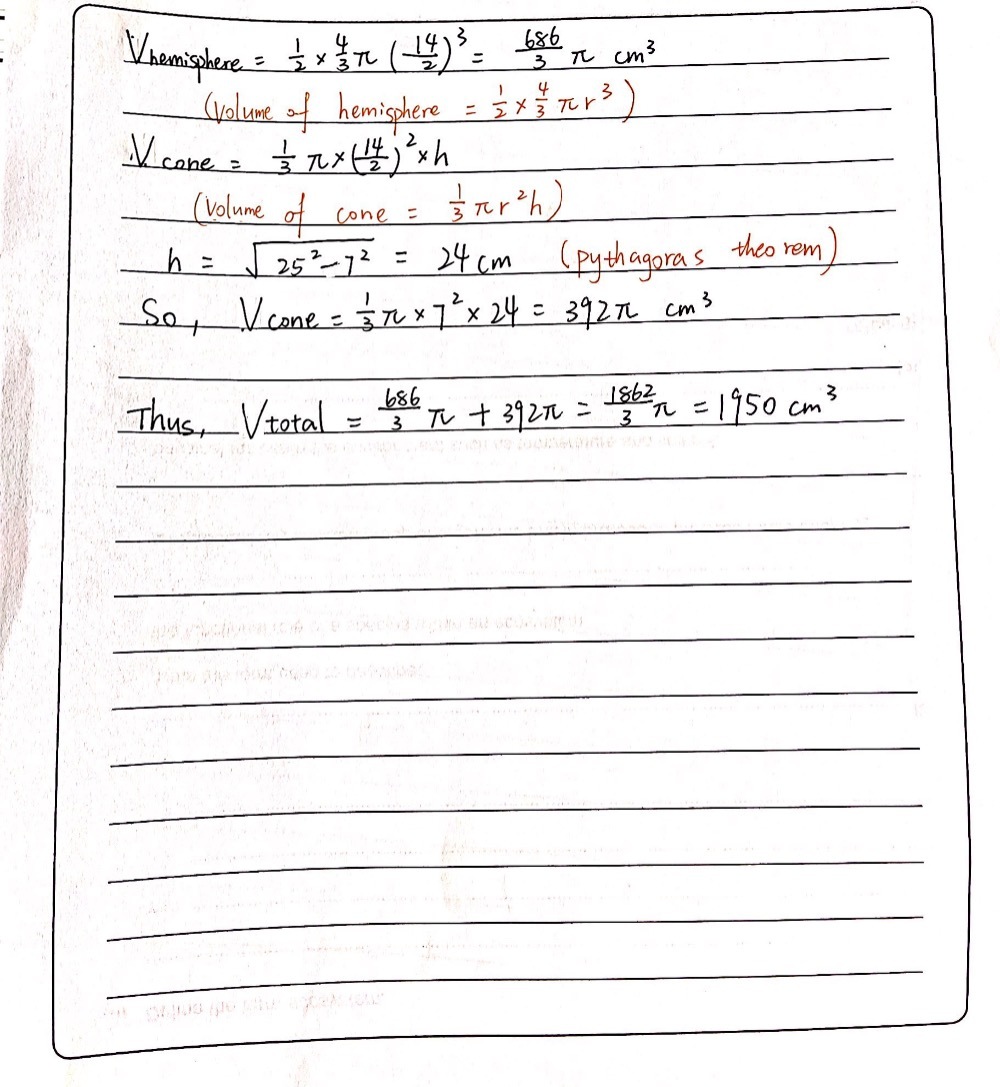 Vhemisphere = 1/2 × 4/3 π (14/2)³ = 686/3 π cm³
(Volume of hemisphere = 1/2 × 4/3 πr³)
Vcone = 1/3 π × (14/2)² × h
(Volume of cone = 1/3 πr²h)
h = √(25² − 7²) = 24 cm (pythagoras theorem)
So, Vcone = 1/3 π × 7² × 24 = 392π cm³
Thus, Vtotal = 686/3 π + 392π = 1862/3 π = 1950 cm³